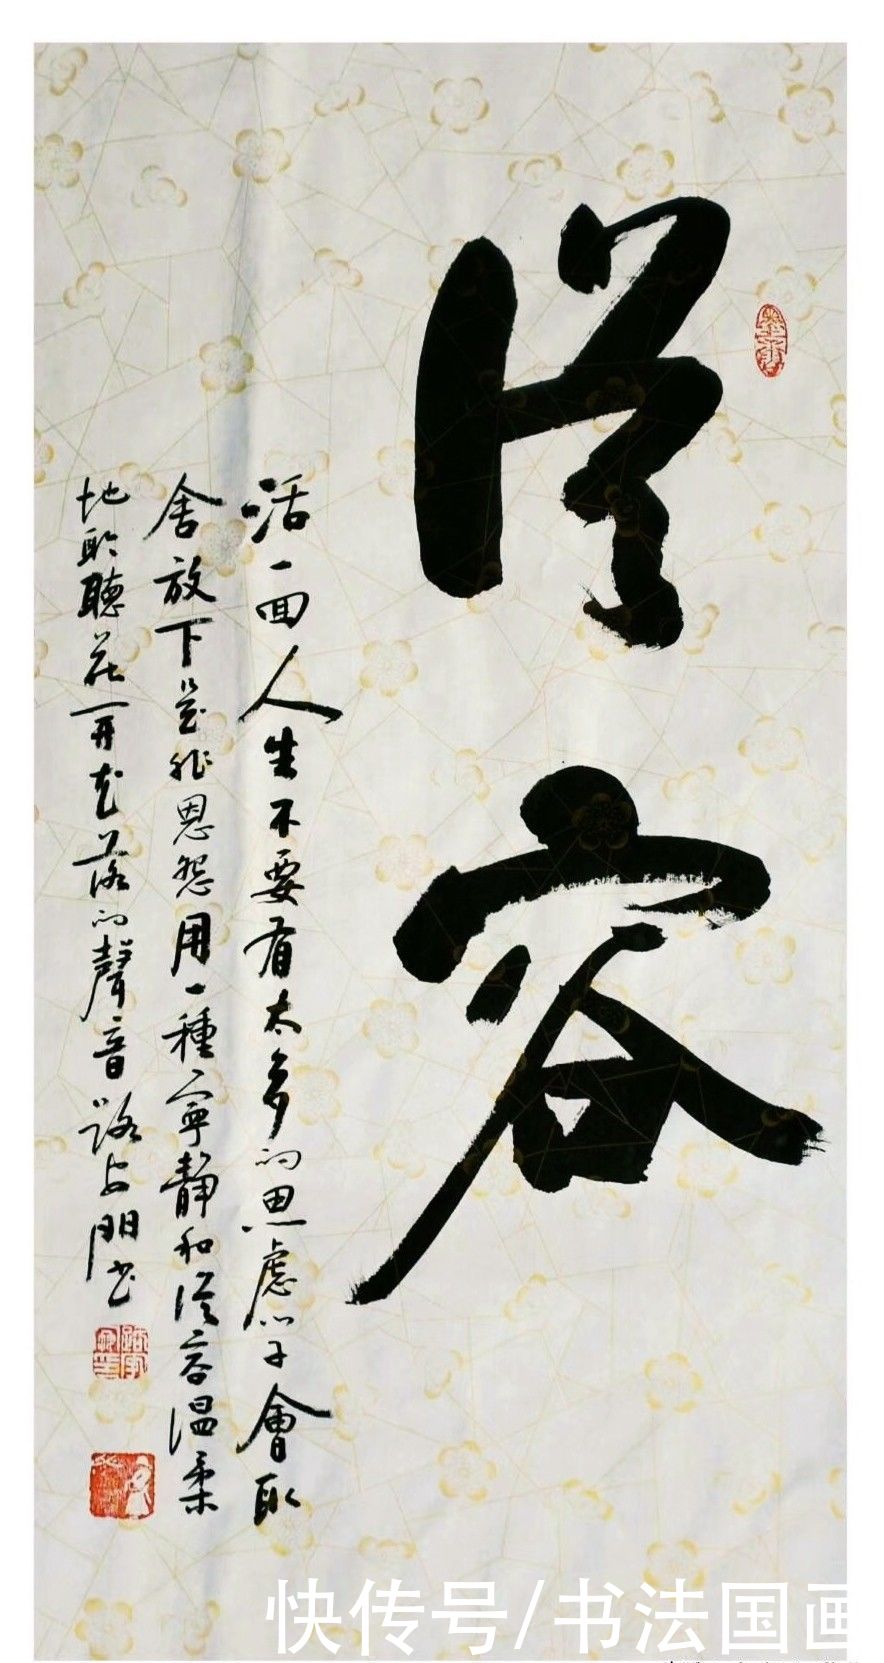 從容
活一囬人生不要有太多的思慮学會取
舍放下是非恩怨用一種寧靜和從容温柔
地聆聽花開花落的聲音路 书
快传号/书法国画